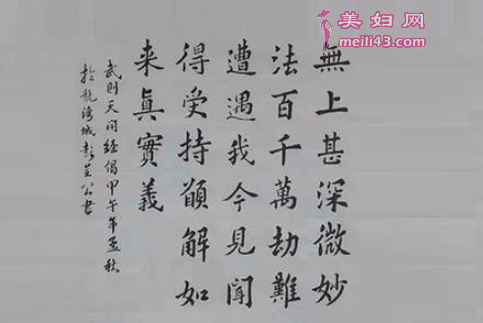 美妇网
meili43.com
無上甚深微妙
法百千萬劫難
遭遇我今見聞
得受持願解如
来眞實義
武則天開經偈甲午年孟秋
於龍灣城彭公書